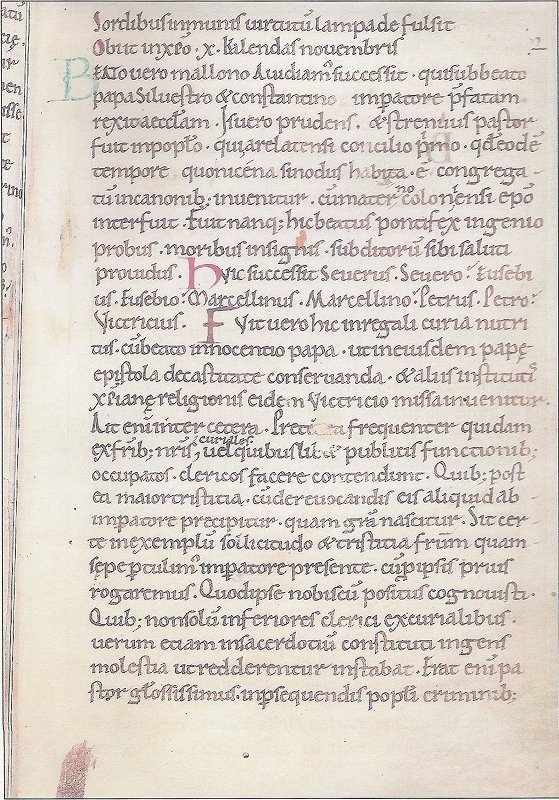 Sordibus inmunis uirtutũ lampade fulsit
Obiit in xp̃o · x · kalendas nouembris
BEATO uero mallono Auidian᷒ successit · qui sub beato
papa Siluestro & constantino imperatore p̃fatam
rexit aecc̃lam · Is uero prudens · & strenuus pastor
fuit in pop̃lo · quia relatensi concilio p̃mo · qd̃ eodẽ
tempore quo nicena sinodus habita · ẽ congrega
tũ in canonib; inuenitur · cũ materno coloniensi ep̃o
interfuit · Fuit nanq; hic beatus pontifex ingenio
probus · moribus insignis · subditorũ sibi saluti
prouidus · Huic successit Seuerus · Seuero · Eusebi
us · Eusebio · Marcellinus · Marcellino · Petrus · Petro ·
Victricius · Fuit uero hic in regali curia nutri
tus · cũ beato innocentio papa · ut in eiusdem papę
epistola de castitate conseruanda · & aliis institutis
xp̃ianę religionis eidem Victricio missa inuenitur.
Ait enĩ inter cetera · frequenter quidam
ex fr̃ib; nr̃is, curiales uel quibuslibet publicis functionib;
occupatos · clericos facere contendunt · Quib; post
ea maior tristitia · cũ de reuocandis eis aliquid ab
imperatore precipitur · quam gr̃a nascitur · Sit cer
te in exemplũ sollicitudo & tristitia fr̃um quam
sepe pertulim᷒ imperatore presente · cũ pro ipsis prius
rogaremus · Quod ipse nobiscũ positus cognouisti ·
Quib; non solũ inferiores clerici ex curialibus ·
uerum etiam in sacerdotiũ constituti ingens
molestia ut redderentur instabat · Erat enĩ pa
stor gl̃osissimus · in persequendis popl̃i criminib;